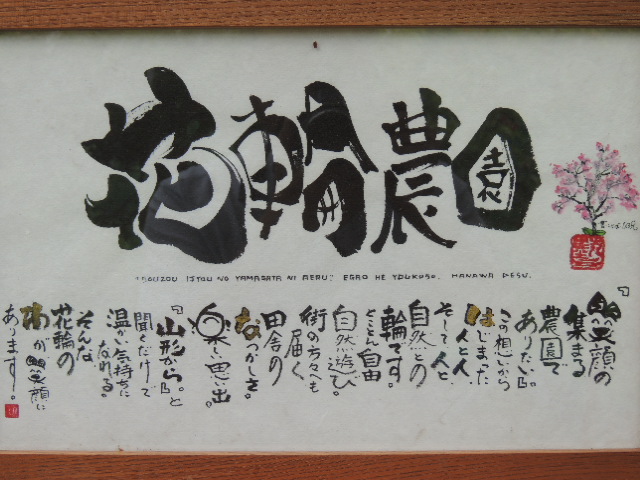 花輪農園
NO YAMAGATA NI AERU" EGAO HE YOUKOSO. HANAWA DESU.
笑顔の
集まる
農園で
ありたい。』
この想いから
はじまった
人と人、
そして人と
自然との
輪です。
とことん自由
自然遊び。
街の方々へも
届く
田舎の
なつかしさ。
楽しい思い出。
『山形から。』と
聞くだけで
温かい気持ちに
なれる。
そんな
花輪の
和が笑顔に
あります。